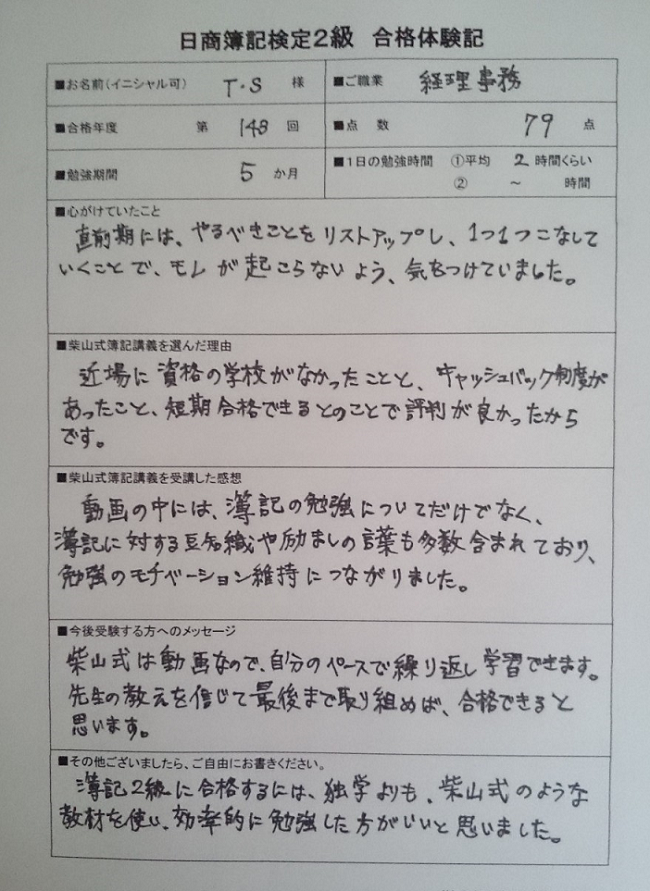 日商簿記検定2級 合格体験記
■お名前(イニシャル可) T・S 様
■ご職業 経理事務
■合格年度 第 148 回
■点 数 79 点
■勉強期間 5 か月
■1日の勉強時間 ①平均 2 時間くらい
② ～ 時間
■心がけていたこと
直前期には、やるべきことをリストアップし、1つ1つこなして
いくことで、モレが起こらないよう、気をつけていました。
■柴山式簿記講義を選んだ理由
近場に資格の学校がなかったことと、キャッシュバック制度が
あったこと、短期合格できるとのことで評判が良かったから
です。
■柴山式簿記講義を受講した感想
動画の中には、簿記の勉強についてだけでなく、
簿記に対する豆知識や励ましの言葉も多数含まれており、
勉強のモチベーション維持につながりました。
■今後受験する方へのメッセージ
柴山式は動画なので、自分のペースで繰り返し学習できます。
先生の教えを信じて最後まで取り組めば、合格できると
思います。
■その他ございましたら、ご自由にお書きください。
簿記2級に合格するには、独学よりも、柴山式のような
教材を使い、効率的に勉強した方がいいと思いました。